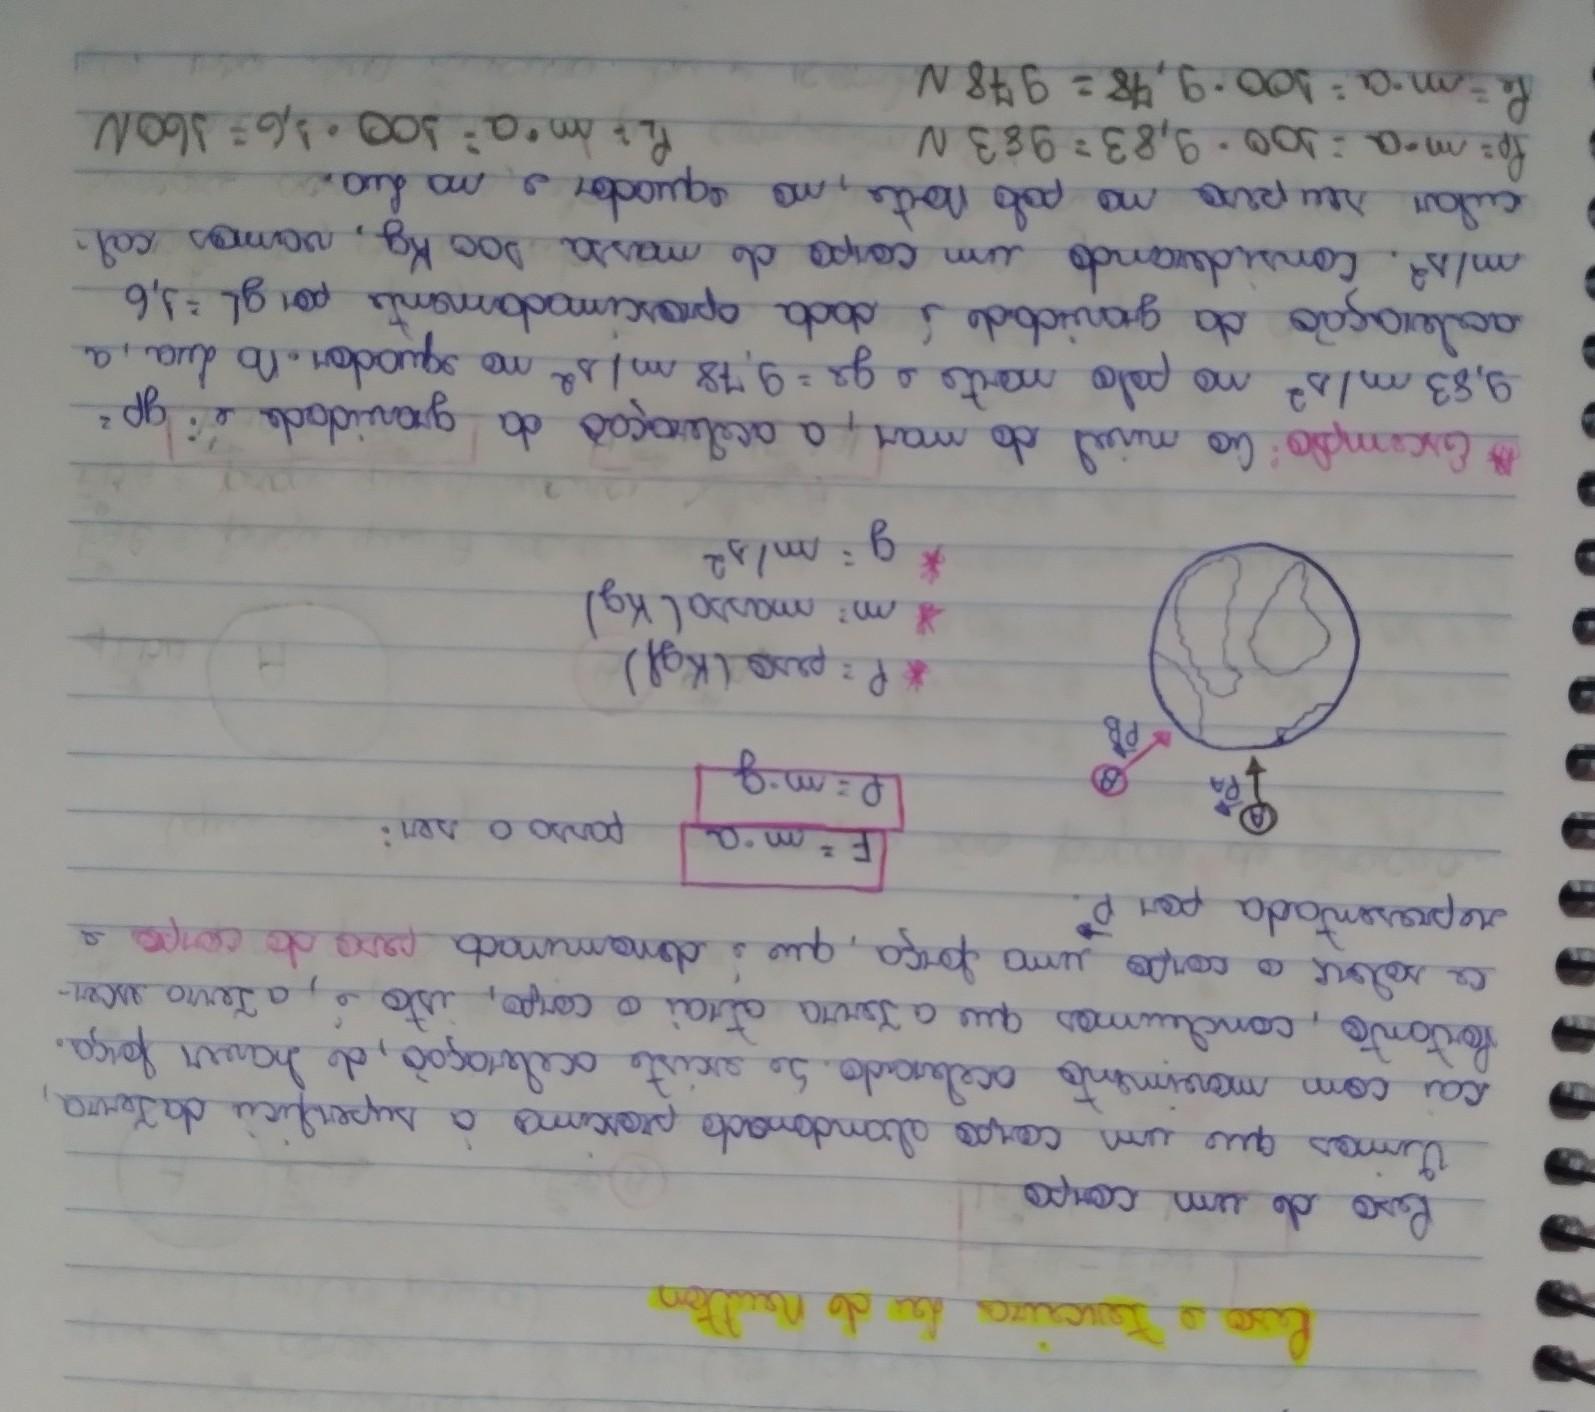 Peso e Terceira Lei de Newton
Peso de um corpo
Vimos que um corpo abandonado proximo à superficie da Terra,
cai com movimento acelerado. Se existe aceleração, de haver força.
Portanto, concluimos que a Terra atrai o corpo, isto é, a Terra exer-
ce sobre o corpo uma força, que é denominado peso do corpo e
representada por P.
F = m·a passa a ser:
P = m·g
A
PA
B
PB
* P = peso (Kgf)
* m = massa (Kg)
* g = m/s²
* Exemplo: Ao nível do mar, a aceleração da gravidade e: gp =
9,83 m/s² no polo norte e ge = 9,78 m/s² no equador. Na Lua, a
aceleração da gravidade é dada aproximadamente por gL = 1,6
m/s². Considerando um corpo de massa 100 Kg, vamos cal-
cular seu peso no polo Norte, no equador e na Lua.
Pp = m·a = 100 · 9,83 = 983 N PL = m·a = 100 · 1,6 = 160 N
Pe = m·a = 100 · 9,78 = 978 N